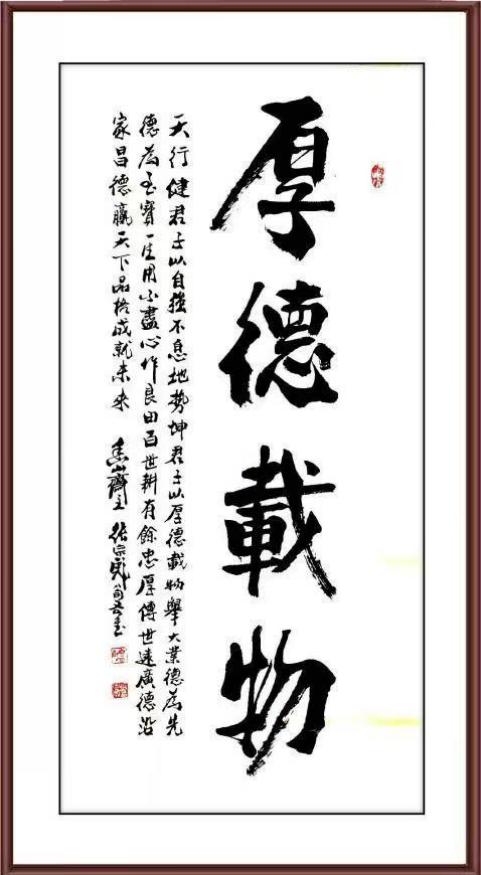 厚德載物
天行健君子以自強不息地勢坤君子以厚德載物舉大業德為先
德為至寶一生用不盡心作良田百世耕有餘忠厚傳世遠廣德沿
家昌德贏天下品格成就未來 香山齋主 張宗彪